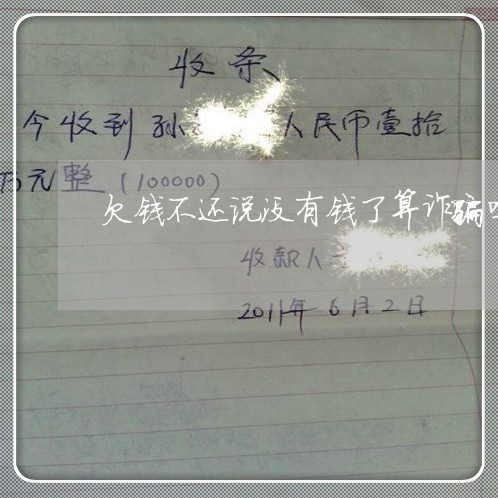 收条
今收到孙 人民币壹拾
万元整(100000)
欠钱不还说没有钱了算诈骗吗
收款人
2011年6月2日